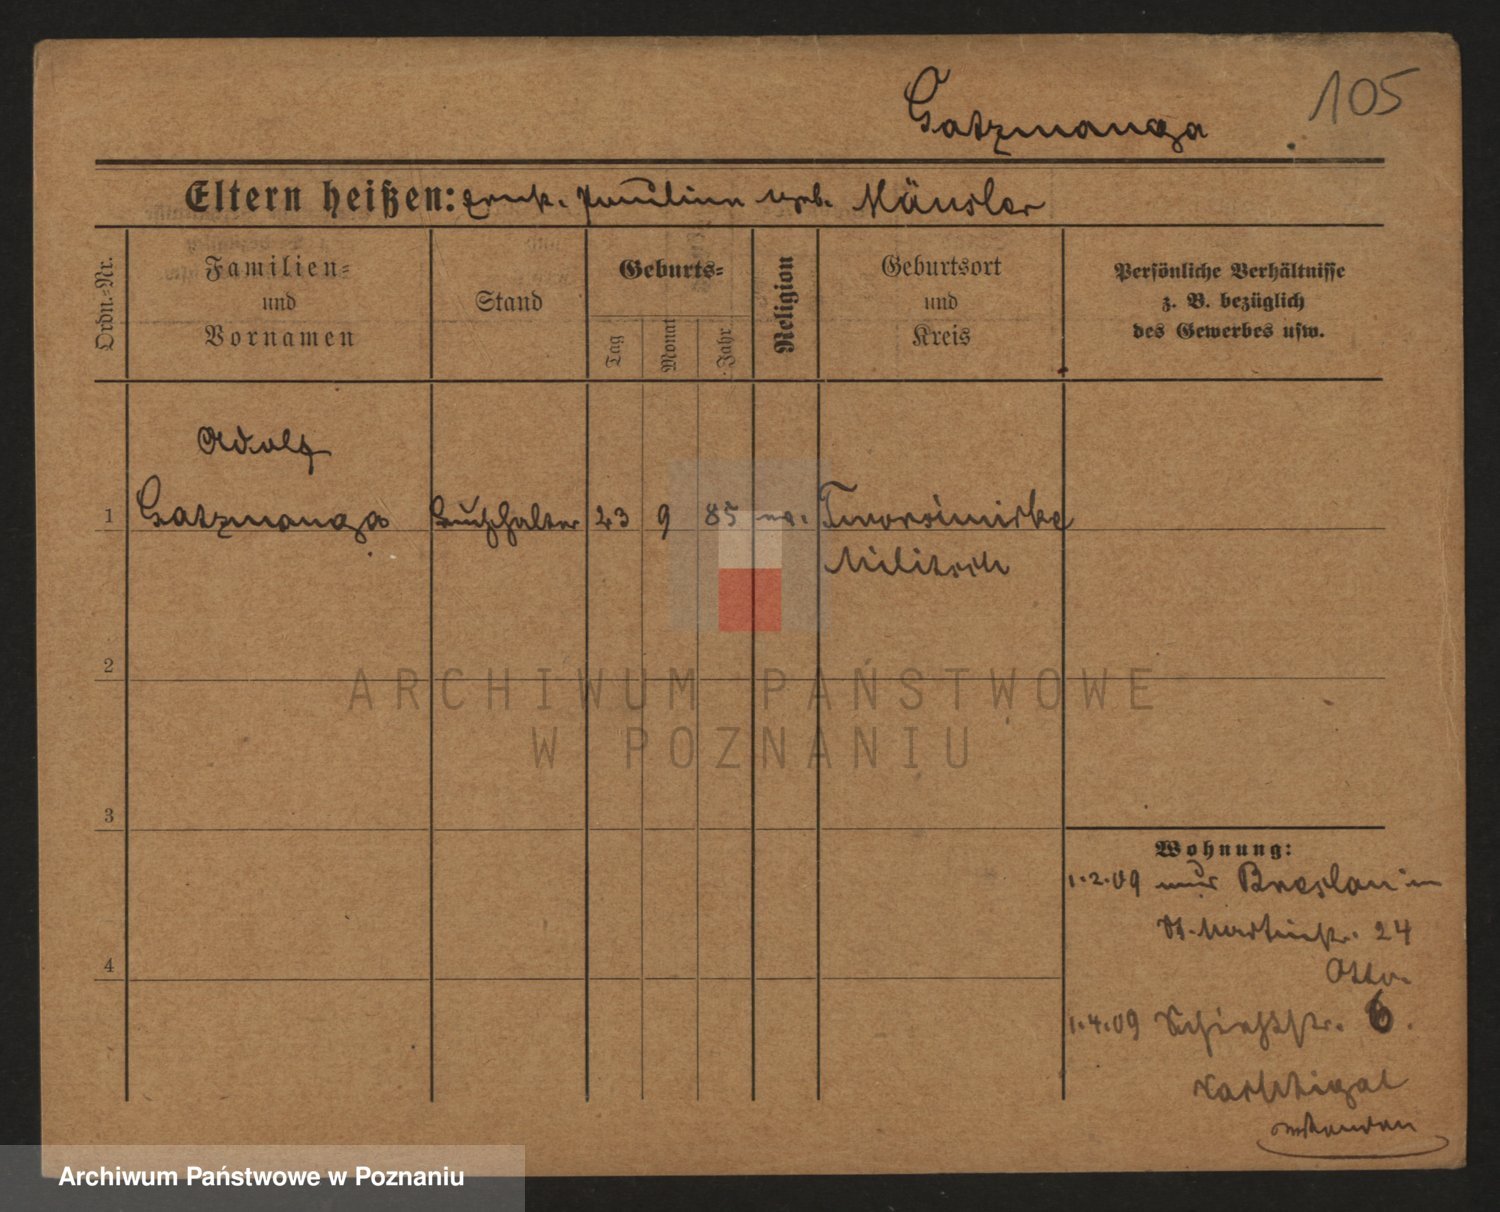 105
Gatzmanga
Eltern heißen: Ernst. Pauline geb. Mäusler
Ordn.-Nr.
Familien-
und
Vornamen
Stand
Geburts-
Tag
Monat
Jahr
Religion
Geburtsort
und
Kreis
Persönliche Verhältnisse
z. B. bezüglich
des Gewerbes usw.
Adolf
1 Gatzmanga Buchhalter 23 9 85 ev.
Militsch
2
3
4
Wohnung:
1.2.09 Breslau
St. Martinstr. 24
Otto.
1.4.09 Schießstr. 6.
ARCHIWUM PAŃSTWOWE
W POZNANIU
Archiwum Państwowe w Poznaniu